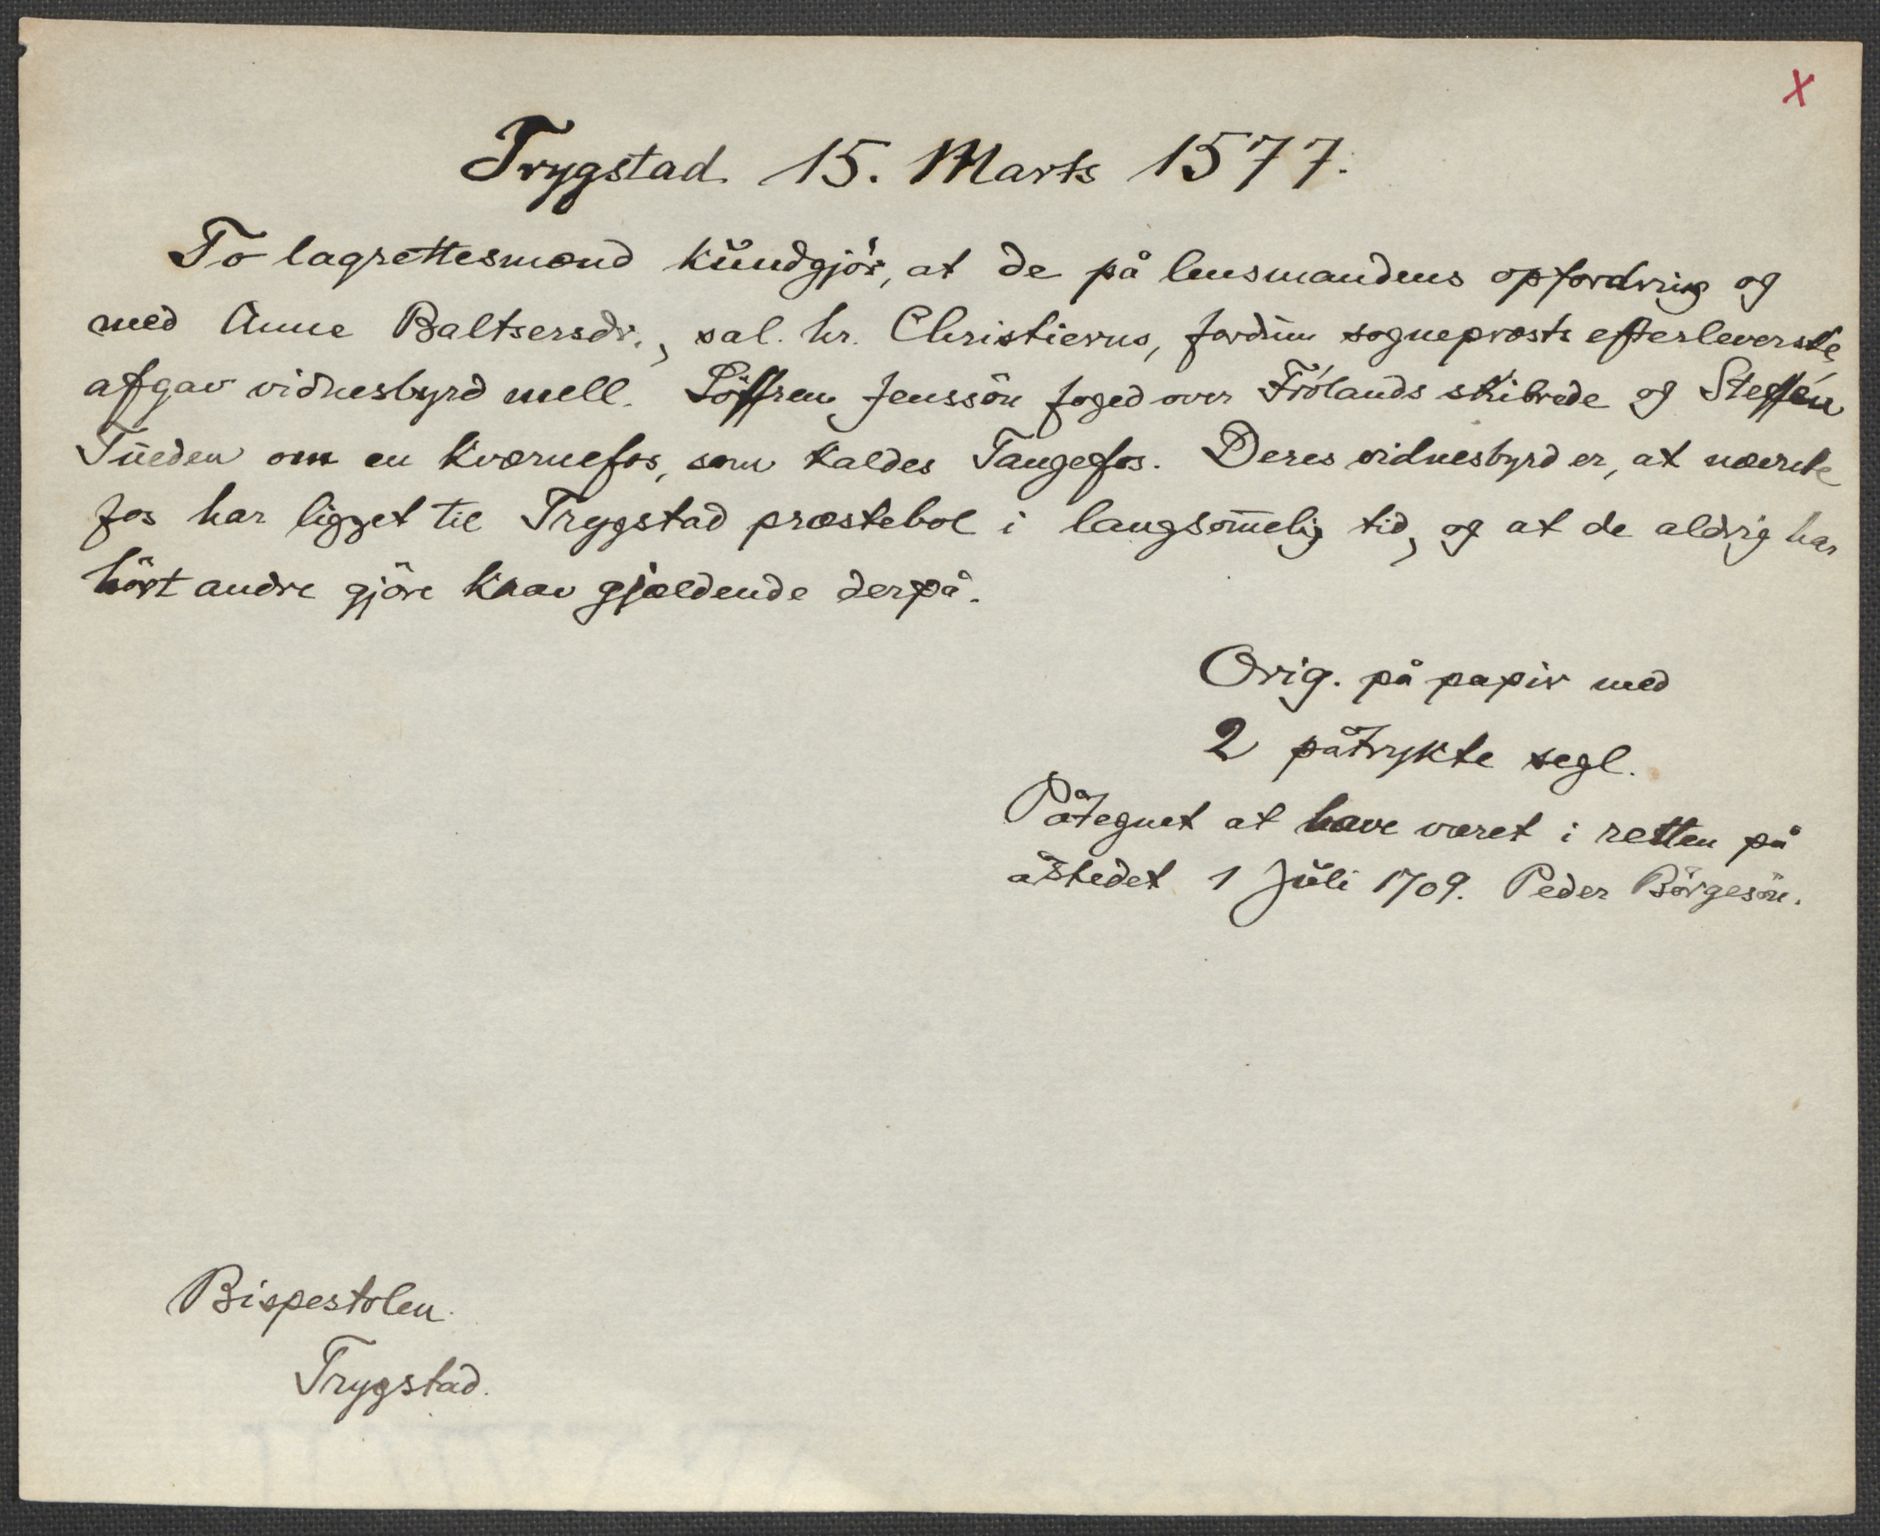 x
Trygstad 15. Marts 1577.
To lagrettesmænd kundgjör, at de på lensmandens opfordring og
med Anne Baltsersdr., sal. hr. Christierns, fordum sogneprosts efterleverske,
afgav vidnesbyrd mell. Söffren Jenssön foged over Frölands skibrede og Steffen
Tueden om en kværnefos, som kaldes Tangefos. Deres vidnesbyrd er, at nævnte
fos har ligget til Trygstad præstebol i langsom̅elig tid, og at de aldrig har
hört andre gjöre krav gjældende derpå.
Orig. på papir med
2 påtrykte segl.
Påtegnet at have været i retten på
åstedet 1 Juli 1709. Peder Börgesön.
Bispestolen.
Trygstad.